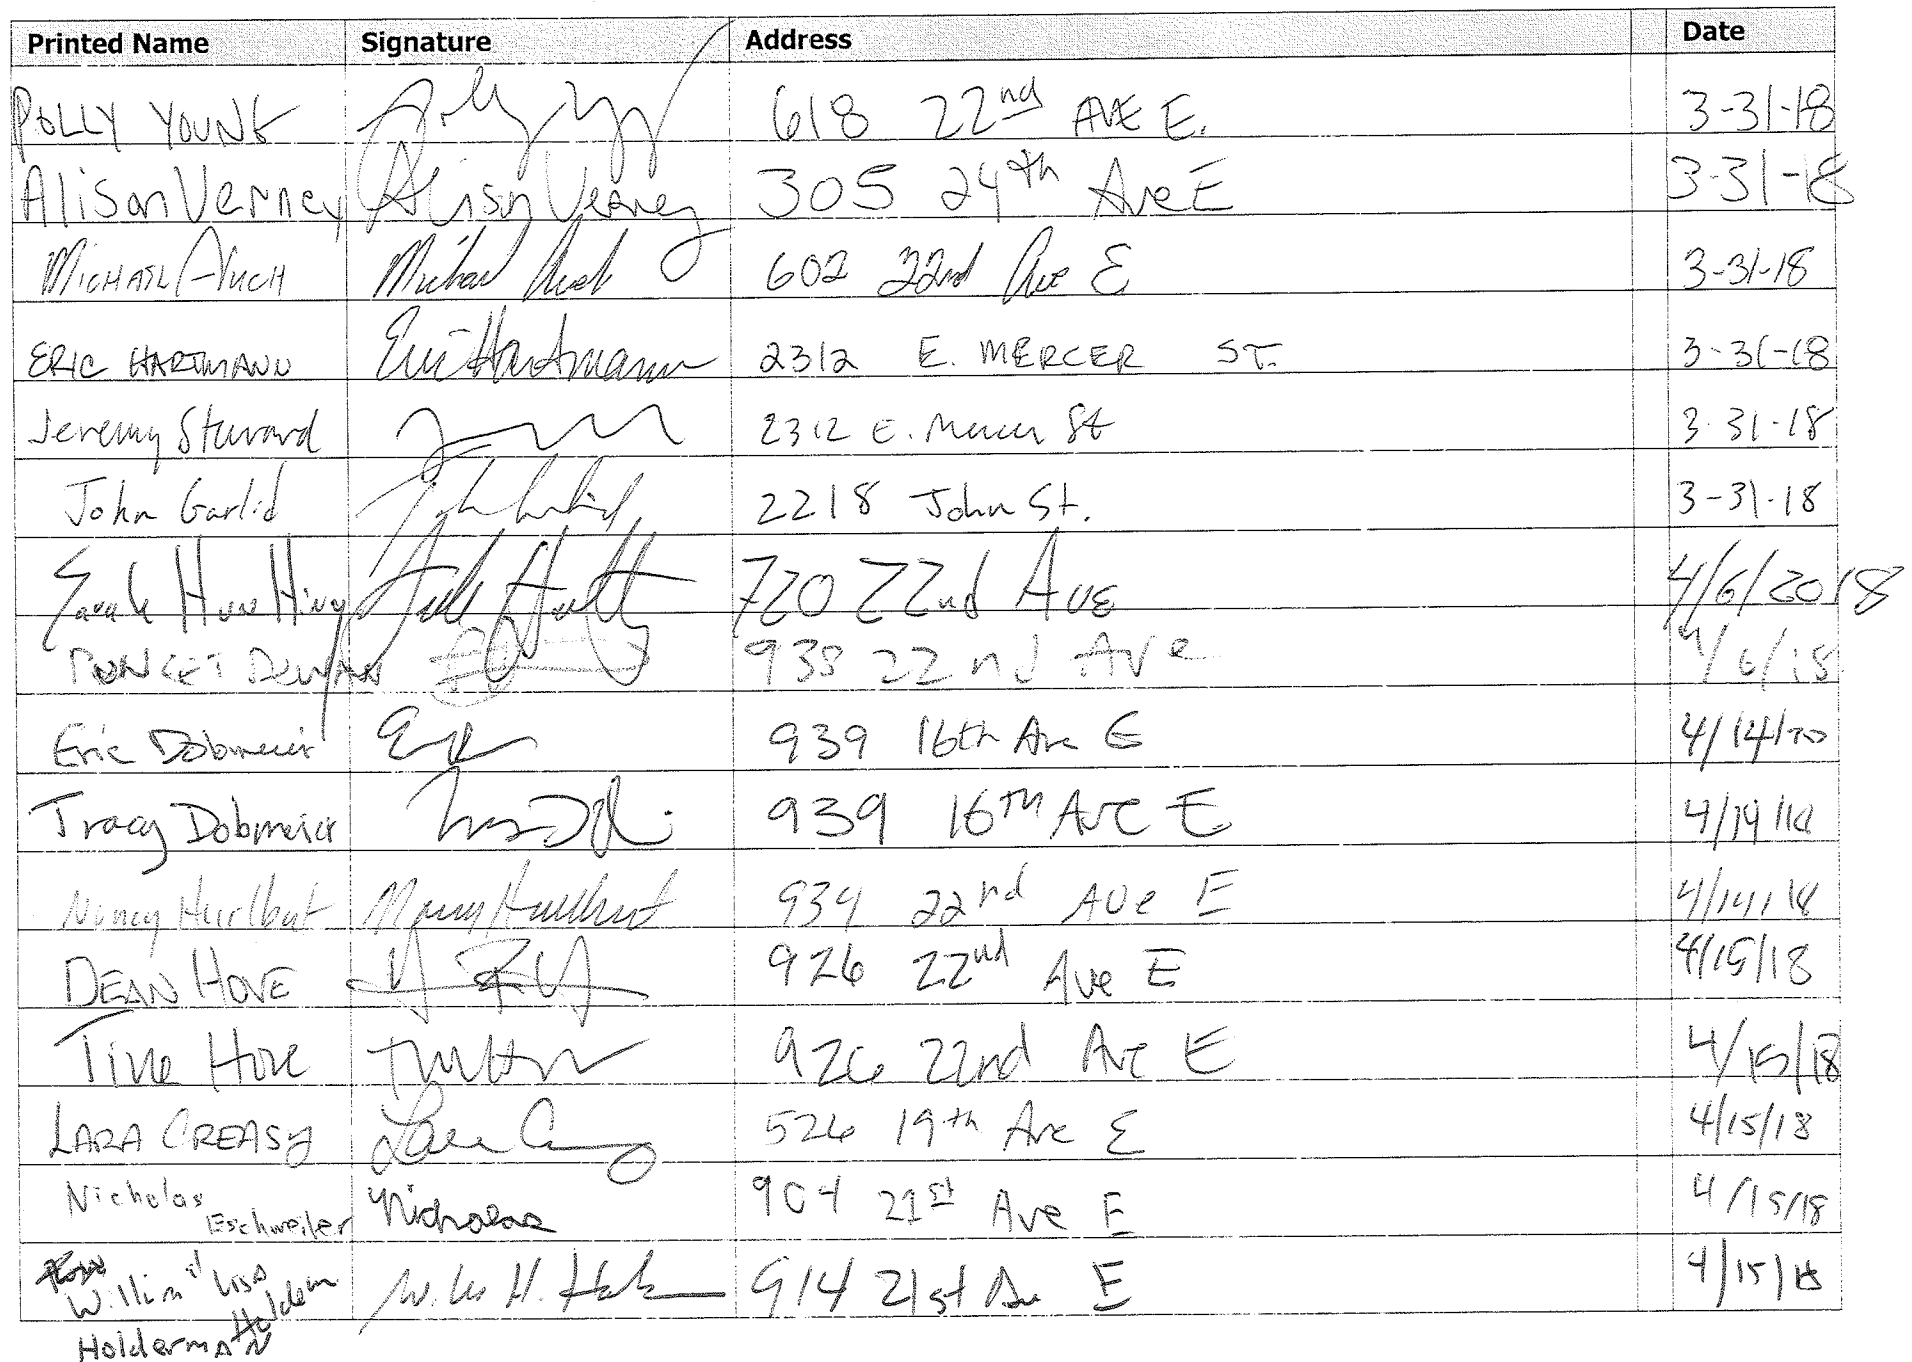 Printed Name Signature Address Date
POLLY YOUNG 618 22nd AVE E. 3-31-18
Alison Verney Alison Verney 305 24th Ave E 3-31-18
MICHAEL AUCH Michael Auch 602 22nd Ave E 3-31-18
ERIC HARTMANN Eric Hartmann 2312 E. MERCER ST. 3-31-18
Jeremy Steward 2312 E. Mercer St 3-31-18
John Garlid John Garlid 2218 John St. 3-31-18
720 22nd Ave 4/6/2018
PUNEET DEWAN 938 22nd Ave 4/6/18
Eric Dobmeier 939 16th Ave E
Tracy Dobmeier 939 16TH AVE E 4/14/18
Nancy Hurlbut Nancy Hurlbut 934 22nd AVe E 4/14/18
DEAN HOVE 926 22nd Ave E 4/15/18
Hove 926 22nd Ave E 4/15/18
LARA CREASY 526 19th Ave E 4/15/18
Nicholas
Eschweiler Nicholas 904 21st Ave E 4/15/18
Lisa 914 21st Ave E 4/15/18
Holderman